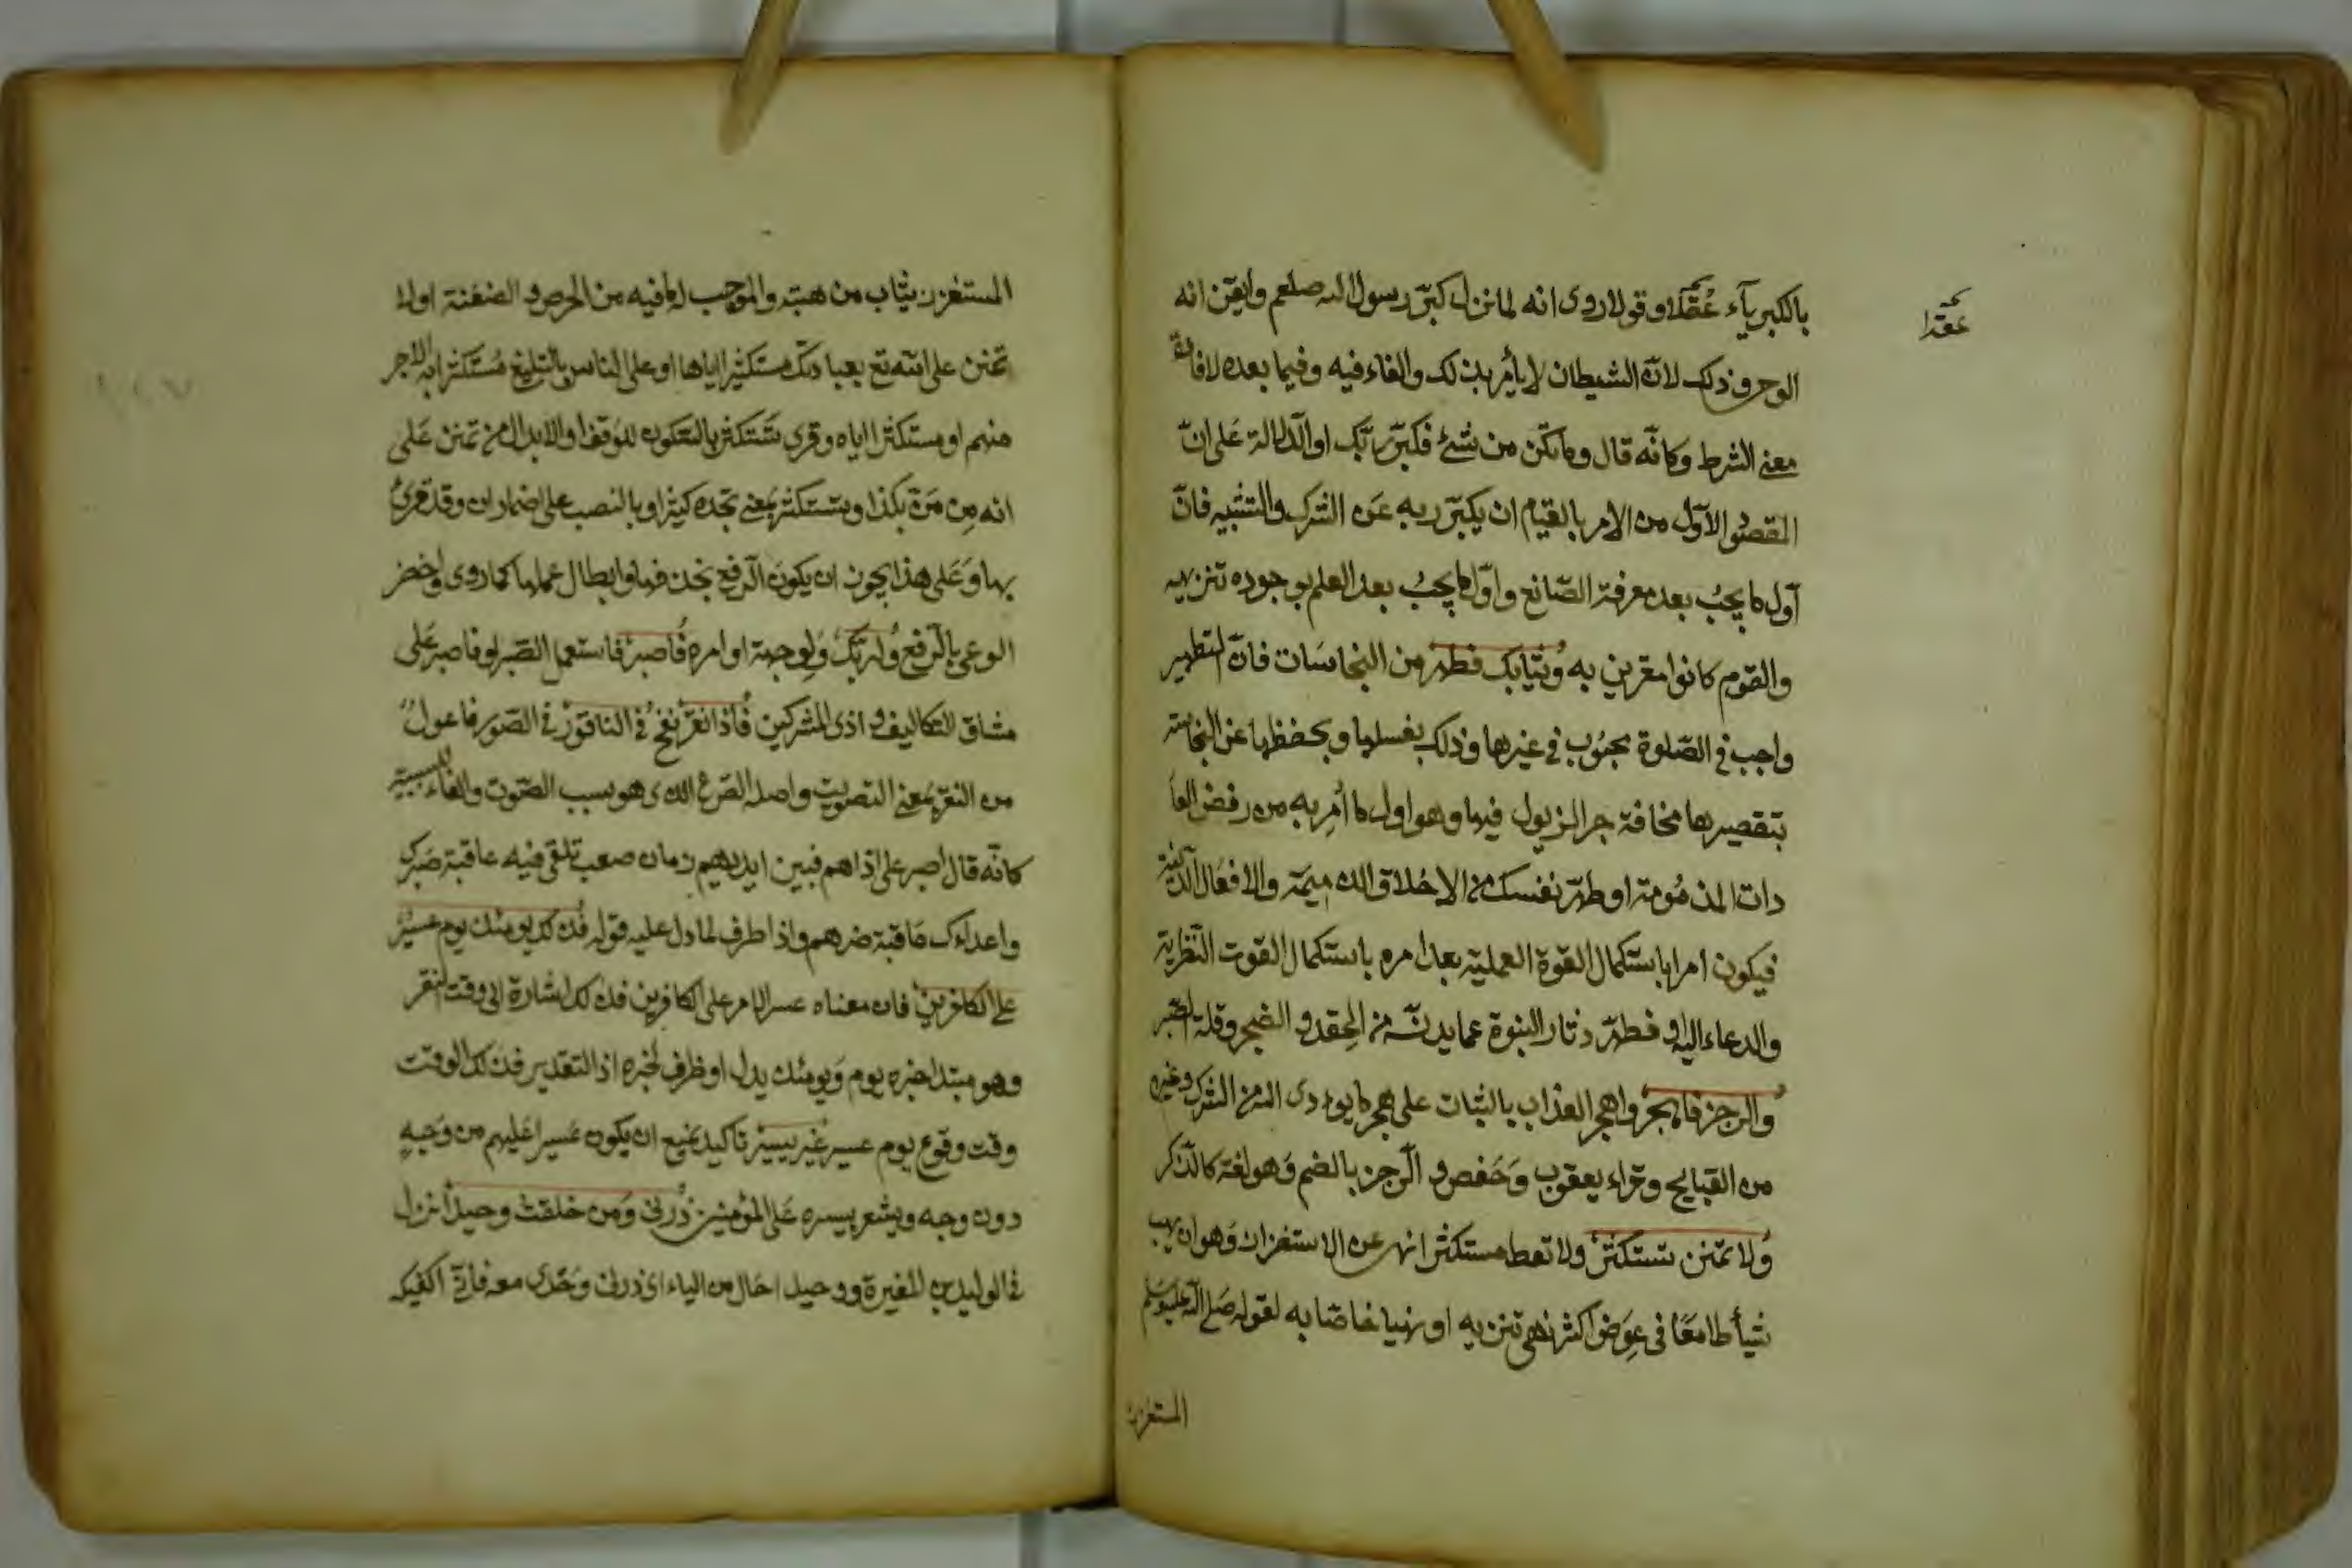 بالكبرياء عقدا وقولا روى انه لما نزل كبّر رسول الله صلعم وايقن انه
عقدا
الوحى وذلك لانّ الشيطان لا يأمر بذلك والفاء فيه وفيما بعده لافادة
معنى الشرط وكانّه قال وما يكن من شئ فكبّر ربّك او الدّلالة على انّ
المقصود الاوّل من الامر بالقيام ان يكبّر ربه عن الشرك والتشبيه فانّ
اوّل ما يجبُ بعد معرفة الصّانع واوّل ما يجبُ بعد العلم بوجوده تنزيهه
والقوم كانوا مقرين به وثيابك فطهر من النجاسات فانّ التطهير
واجب فى الصّلوة محبُوب فى غيرها وذلك بغسلها وبحفظها عن النجاسة
بتقصيرها مخافة جر الذيول فيها وهو اول ما أمِر به من رفض العا
دات المذمُومة او طهّر نفسك من الاخلاق الذميمة والافعال الدنية
فيكون امرا باستكمال القوة العملية بعد امره باستكمال القوت النّظرية
والدعاء اليه او فطهّر دثار النبوة عما يدنّسه من الحِقد و الضجر وقلة الصّبر
والرجز فاهجر واهجر العذاب بالثبات على هجر ما يودى اليه من الشرك وغيره
من القبايح وقراء يعقوب وَحَفص و الرّجز بالضم وَهو لغة كالذّكر
ولا تمنن تستكثر ولا تعط مستكثرا نهى عن الاستغزار وَهو ان يهب
شيأ طامعًا فى عِوَض اكثر نهى تنزيه او نهيا خاصّا به لقوله صَلى الله عليه وسلم
المستغزر
المستغزر يثاب من هبته والموجب له ما فيه من الحرص و الضغنة اولا
تمنن على الله تع بعبادتك مستكثرا اياها او على الناس بالتبليغ مُستكثرا به الاجر
منهم او مستكثرا اياه وقرى تَستكثر بالسّكون للوَقف او الابدال من تمنن عَلى
انه مِن مَنّ بكذا وتستكثر بمَعنى تجده كثيرا وبالنصب على اضمار ان وقد قرئ
بها وَعَلى هذا يجوز ان يكون الرّفع بحذفها وابطال عملها كما روى واحضر
الوغى بالرّفع ولربّك وَلِوجهه او امره فاصبر فاستعمل الصّبر او فاصبر عَلى
مشاق التكاليف و اذى المشركين فاذا نقر نفخ فى الناقور فى الصّور فاعول
من النقر بمعنى التصويت واصله القرع الذى هو سبب الصّوت والفاء للسببية
كانّه قال اصبر على اذاهم فبين ايديهم زمان صعب تلقى فيه عاقبة صَبرك
واعداءك عَاقبة ضرهم واذا ظرف لما دل عليه قوله فذلك يومئذ يوم عسير
على الكافرين فان معناه عسر الامر على الكافرين فذلك اشارة الى وقت النقر
وهو مبتدا خبره يوم وَيومئذ بدل او ظرف لخبره اذ التقدير فذلك الوقت
وقت وقوع يوم عسير غير يسير تاكيد يمنع ان يكون عَسيرا عَليهم من وَجهٍ
دون وجه ويشعر بيسره عَلى المؤمنين ذرنى وَمن خلقت وحيدا نزل
فى الوليد بن المغيرة ووحيدا حَال من الياء اى ذرنى وَحْدى معه فانّى اكفيكه